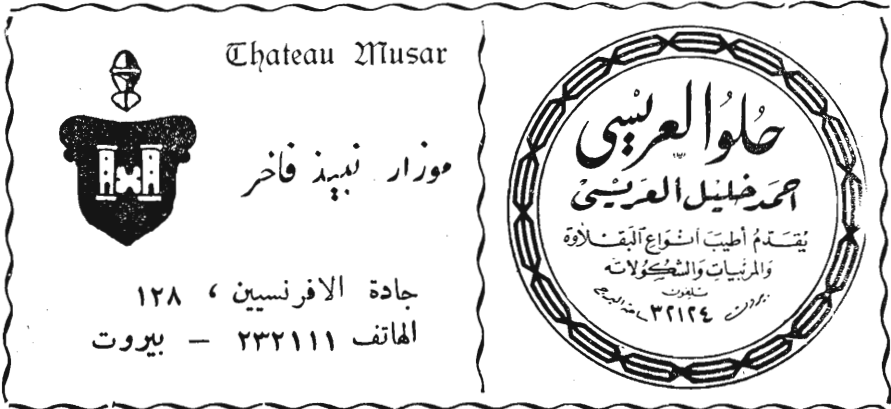 Chateau Musar
موزار نبيذ فاخر
جادة الافرنسيين ، ١٢٨
الهاتف ٢٣٢١١١ — بيروت
حُلوُ العريسي
احمَد خليل العَريسْي
يُقَدّمُ أطيَبَ أنوَاعِ البَقْلاوَة
وَالمرَبّيَاتِ وَالشّكُولاته
تلفون
بيروت ٣٢١٢٤ ساحة البرج